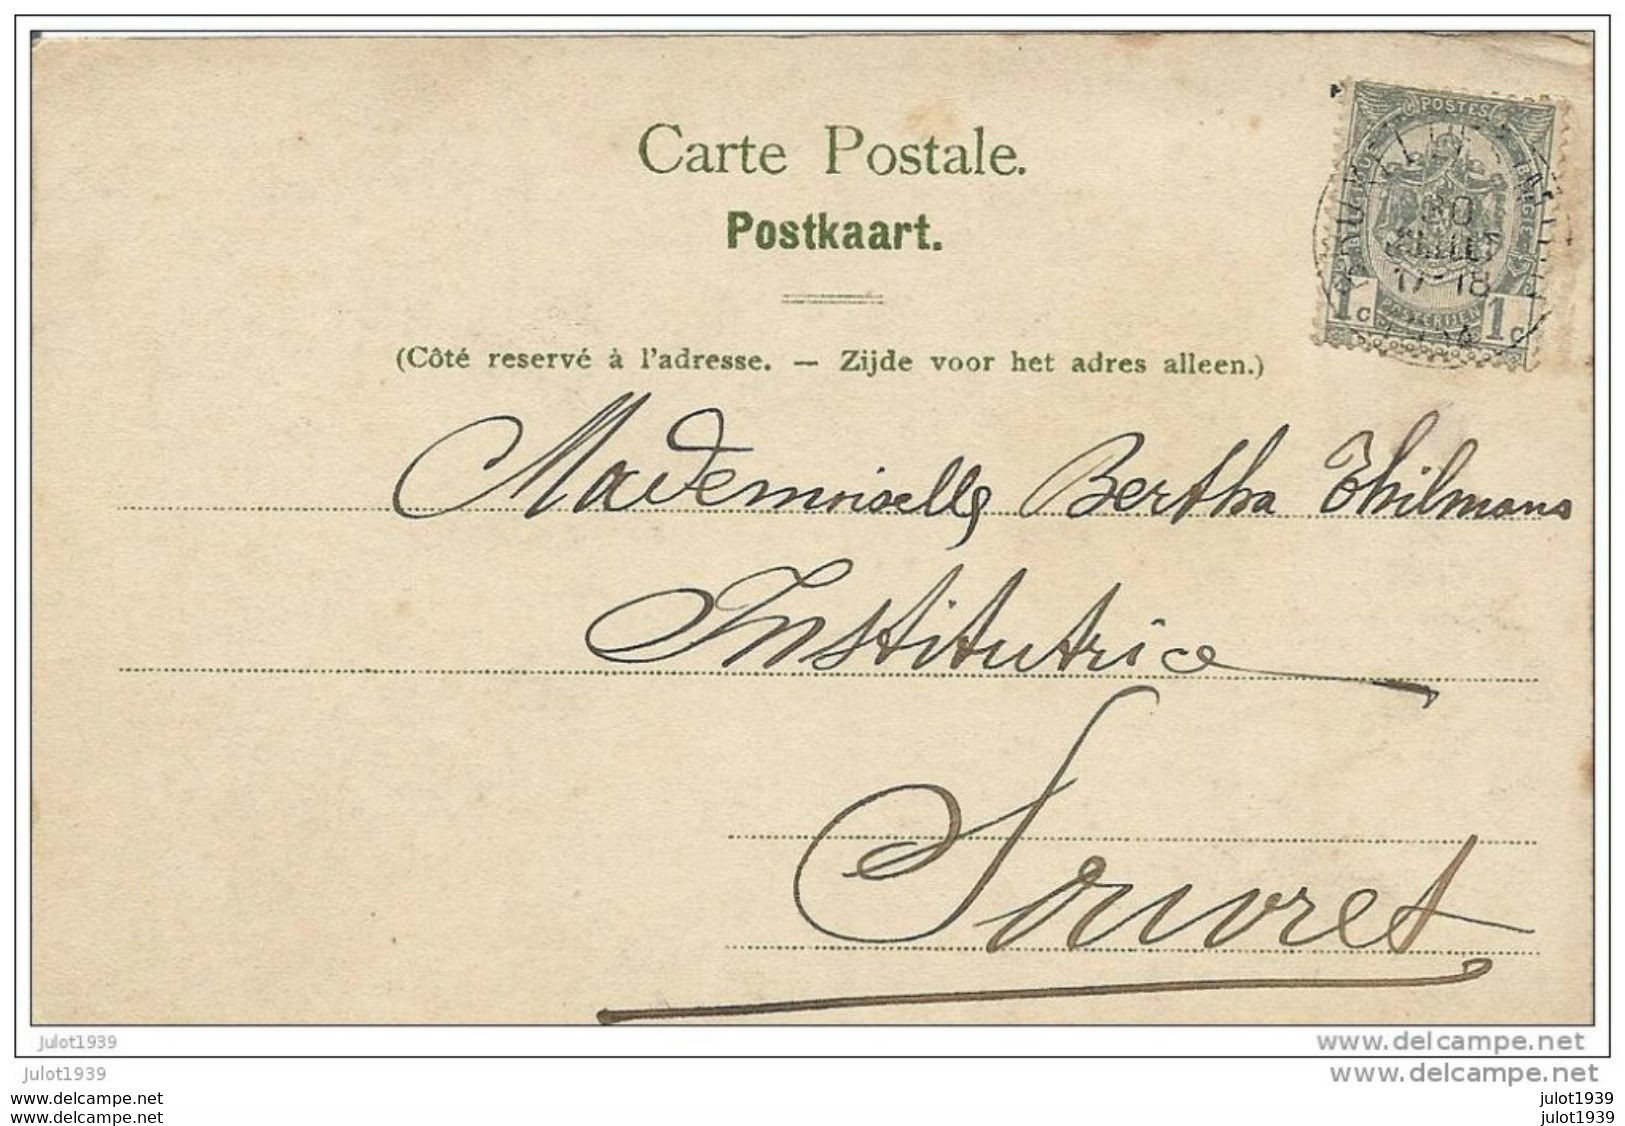 Carte Postale.
Postkaart.
(Côté reservé à l'adresse. — Zijde voor het adres alleen.)
POSTES
30
JUILLET
17-18
1c 1c
POSTERIJEN
Mademoiselle Bertha Thilmans
Institutrice
Souvret
julot1939 www.delcampe.net
julot1939 www.delcampe.net
www.delcampe.net julot1939
www.delcampe.net julot1939